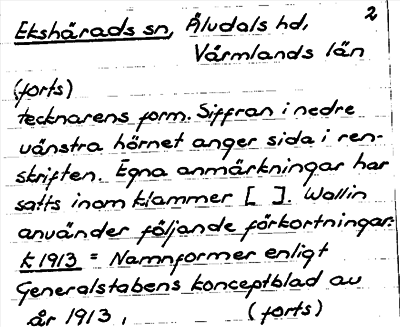 2
Ekshärads sn, Äludals hd,
Värmlands län
(forts)
tecknarens form. Siffran i nedre
vänstra hörnet anger sida i ren-
skriften. Egna anmärkningar har
satts inom klammer [ ]. Wallin
använder följande förkortningar:
k 1913 = Namnformer enligt
Generalstabens konceptblad av
år 1913, (forts)